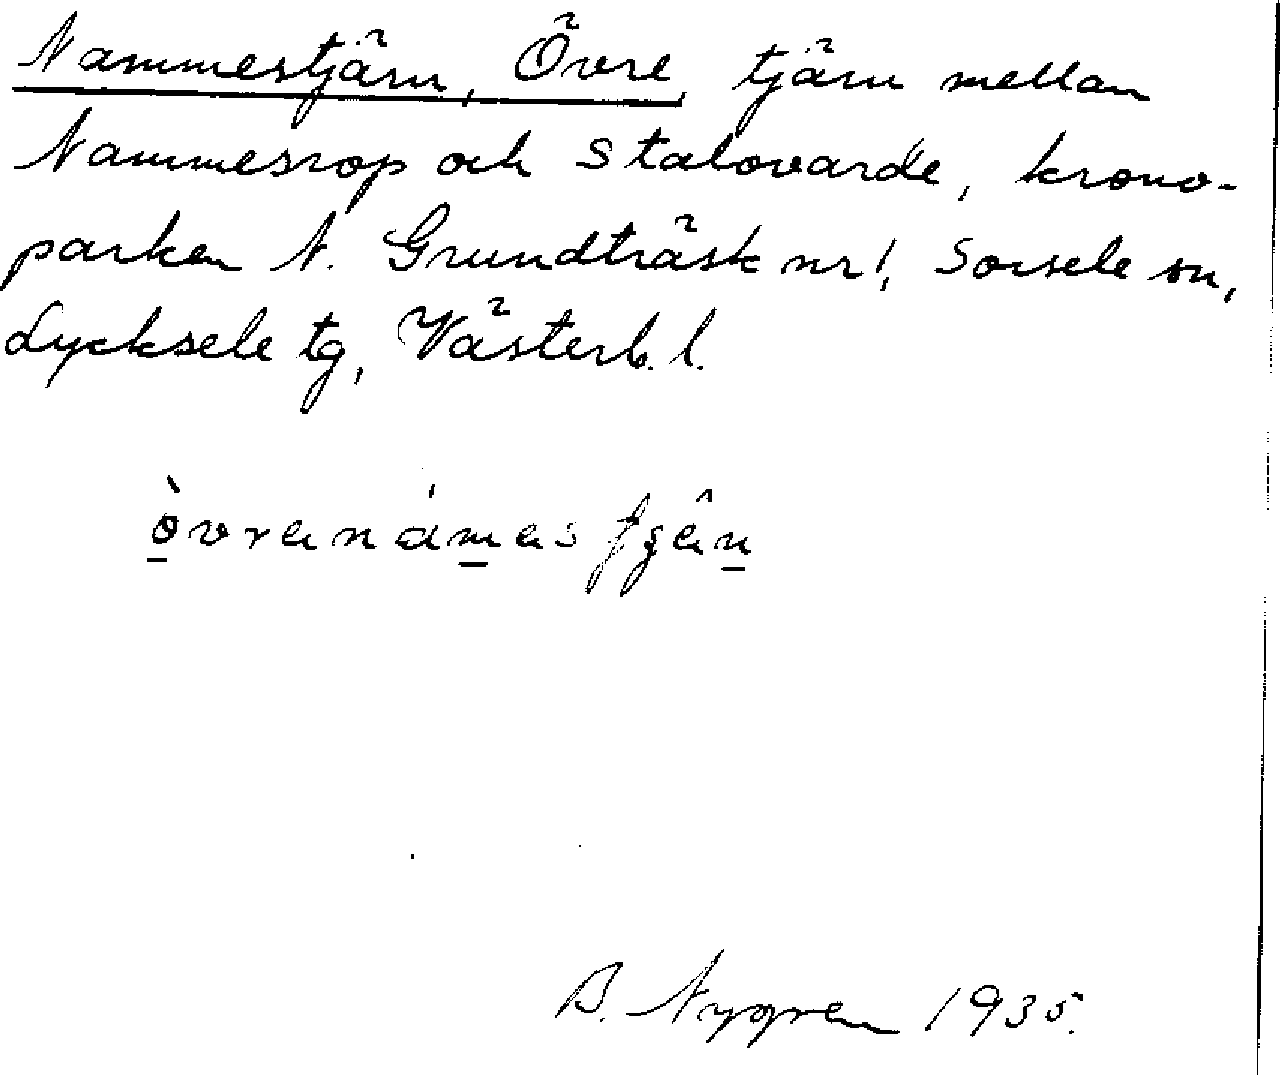 Nammestjärn, Övre, tjärn mellan
Nammesrop och Stalovarde, krono-
parken N. Grundträsk nr 1, Sorsele sn,
Lycksele tg, Västerb. l.
B. Nygren 1935.